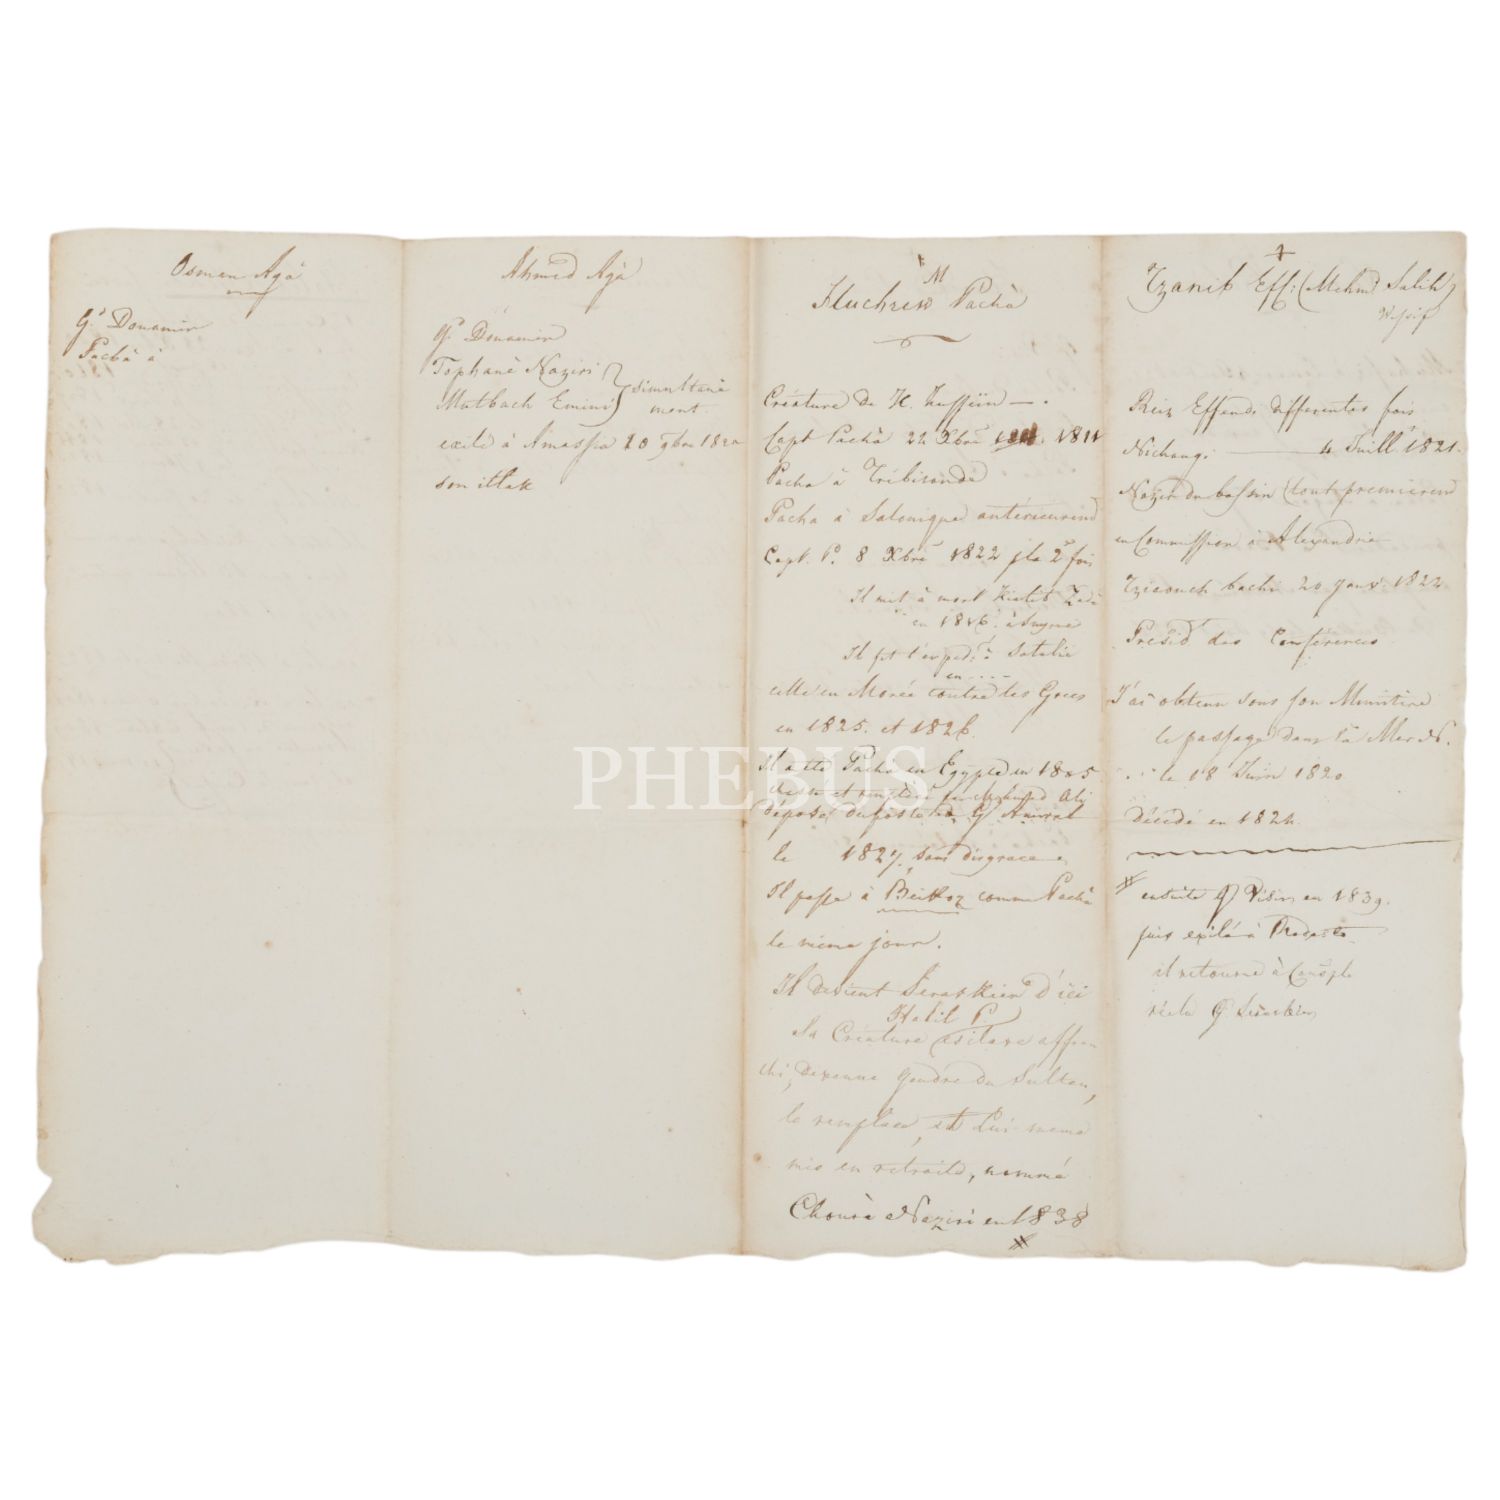 Osman Agà
G.d Douanier
Pachà à
Ahmed Agà
G.d Douanier
Tophanè Naziri
Mutbach Emini } simultané
ment.
exilé à Amassia 20 9bre 1820
son itlak
M
Huchrew Pachà
Créature de H. Husseïn —.
Capt Pachà 22 Xbre 1811
Pacha à Trébisonde
Pacha à Salonique antérieurem
Capt. P. 8 Xbre 1822 p la 2e fois
Il mit à mort Kiatib Zadé
en 1816. à Smyrne
Il fit l'expedn à Satalie
en ....
celle en Morée contre les Grecs
en 1825. et 1826.
Il a été Pacha en Egypte en 1805.
chassé et remplacé par Mehemed Ali
déposé du poste de Gd Amiral
le 1827, sans disgrace
Il passe à Beikoz comme Pachà
le même jour.
Il devient Seraskier d'ici
Halil P.
Sa Créature (esclave affran
chi, devenu gendre du Sultan,
le remplace, et Lui-meme
mis en retraite, nommé
Chourà Naziri en 1838
#
Tzanib Eff: (Mehmd Salih)
Reiz Effendi differentes fois
Nichangi — 4 Juill.t 1821.
Nazir du bassin (tout premierem
en Commission à Alexandrie
Tziaouch bachi 20 janv. 1822
Présid. des Conférences
J'ai obtenu sous son Ministère
le passage dans la Mer N.
... le 18 Juin 1820
Décédé en 1824.
# ensuite Gd Visir en 1839.
puis exilé à Rodosto
il retourne à Consple